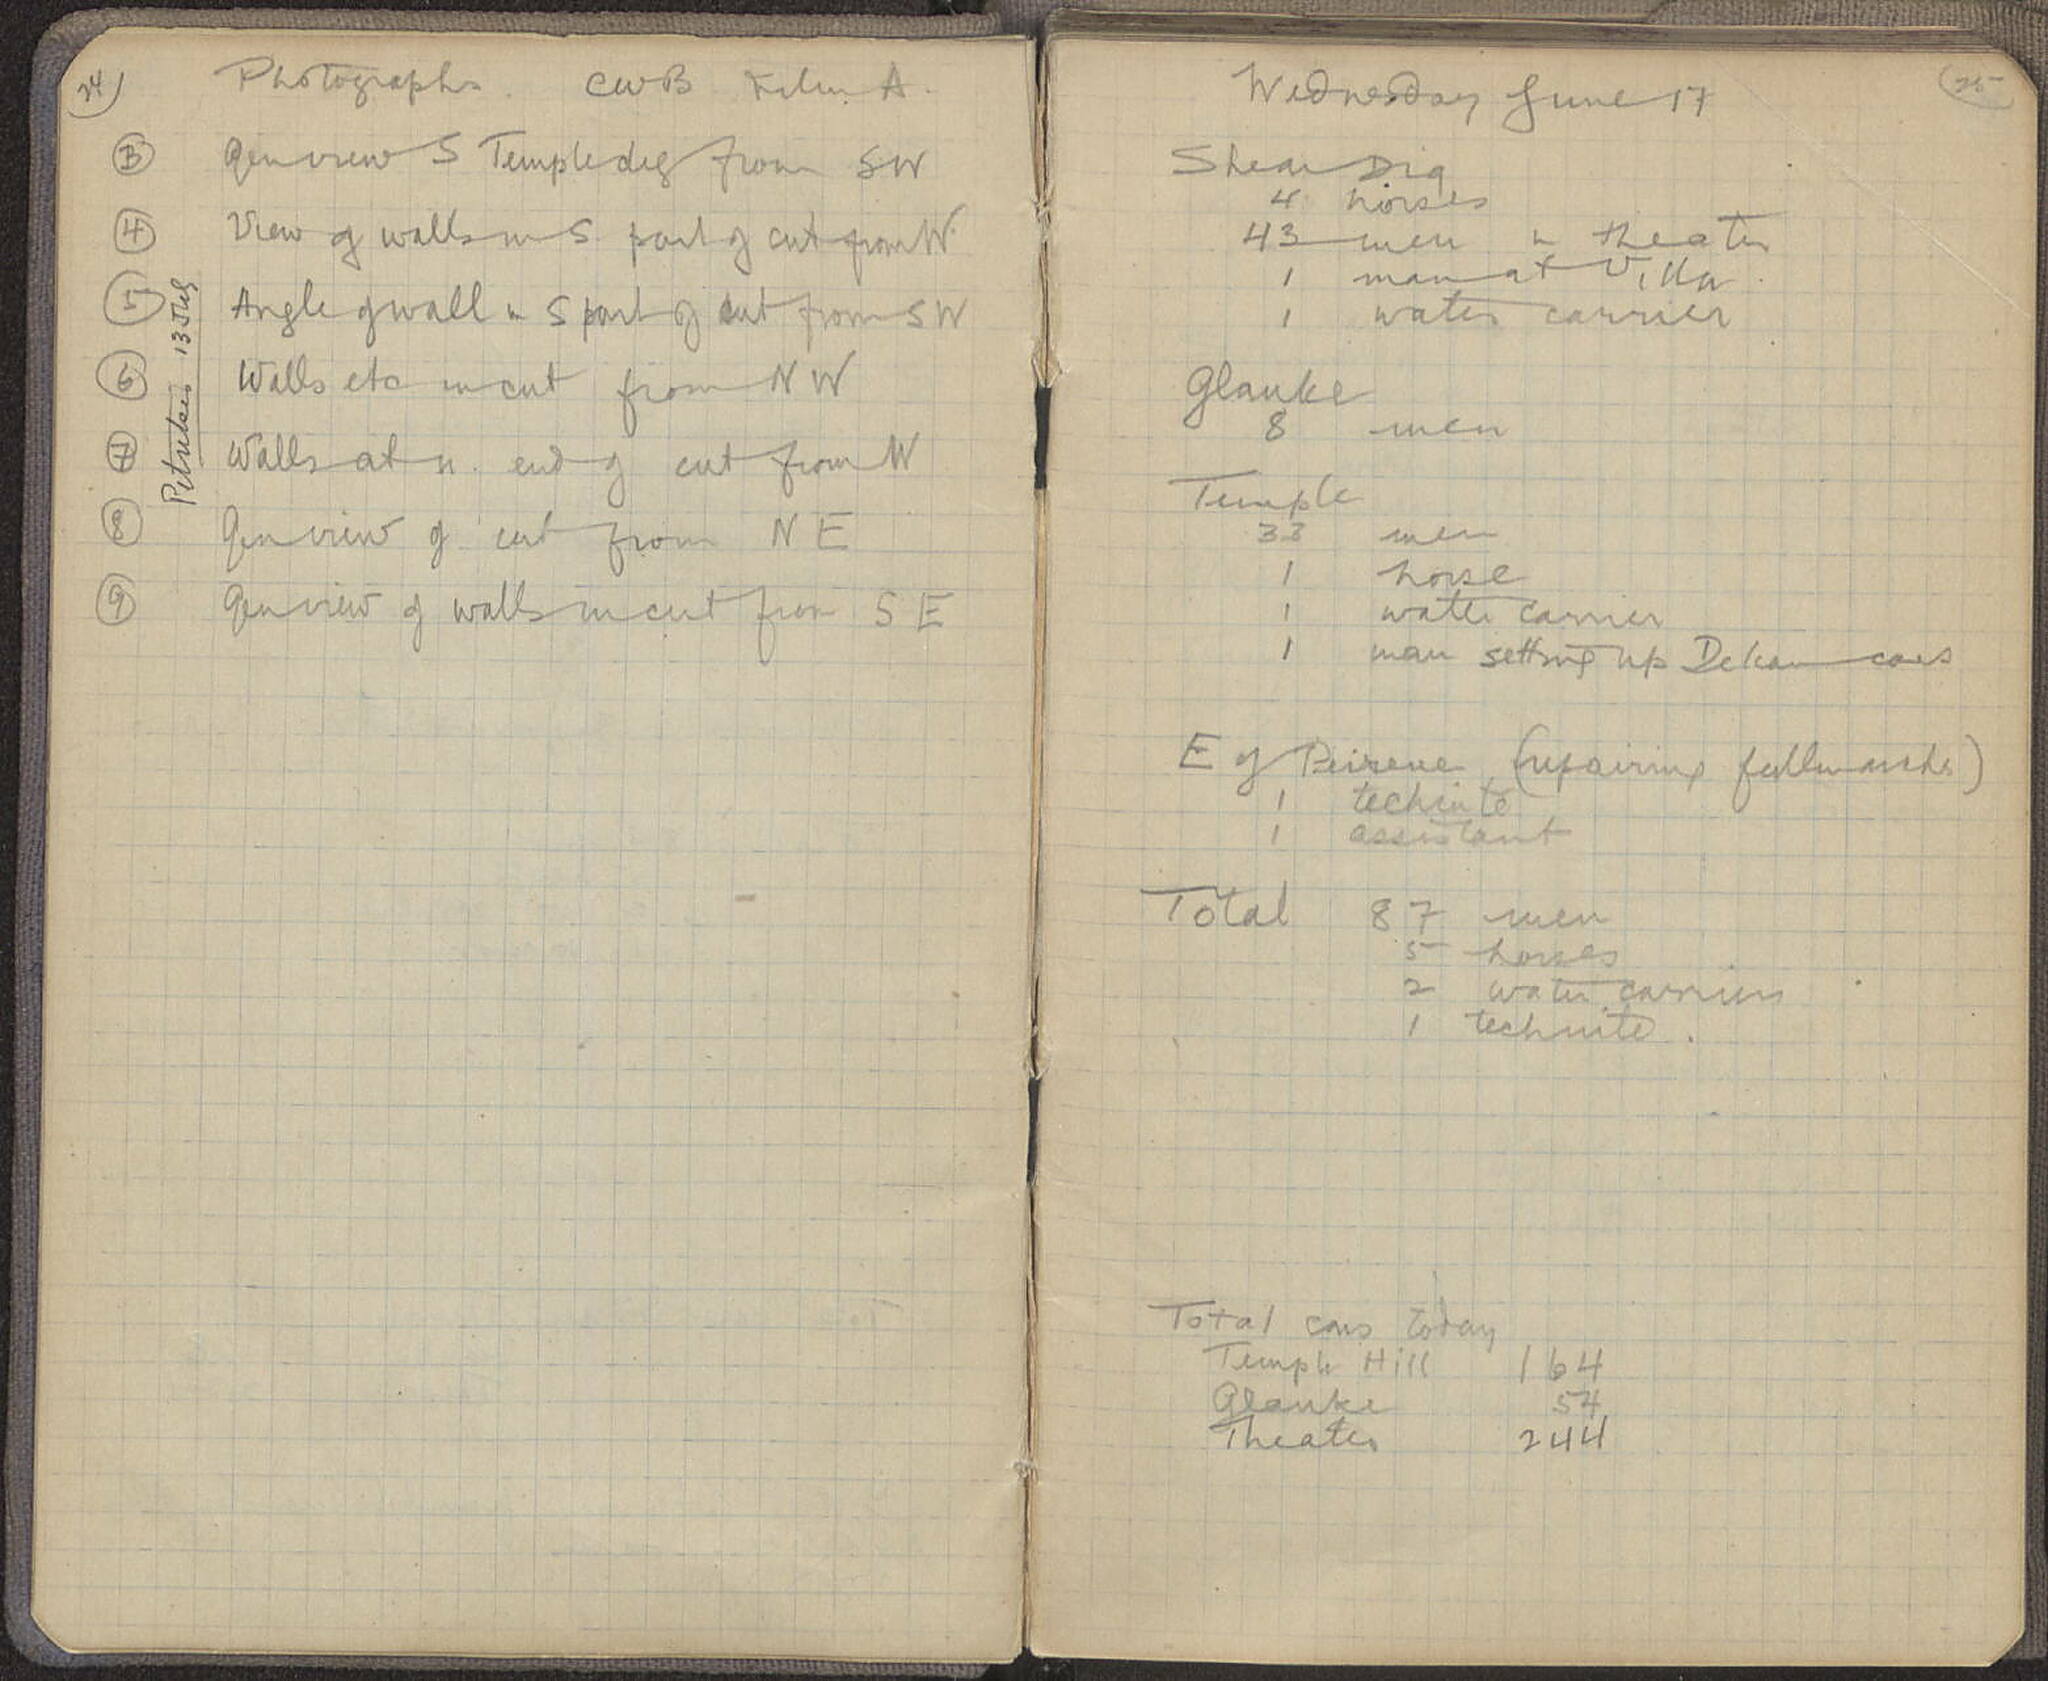 24
Photographs. CWB Film A.
3 Gen view S Temple dig from SW
4 View of walls in S. part of cut from W.
5 Angle of wall in S part of cut from SW
6 Walls etc in cut from NW
7 Walls at n. end of cut from W
8 Gen view of cut from NE
9 Gen view of walls in cut from SE
25
Wednesday June 17
Shear Dig
4 horses
43 men in theater
1 man at Villa.
1 water carrier
Glauke
8 men
Temple
33 men
1 horse
1 water carrier
1 man setting up Dekau cars
E of Peirene (repairing
1 technite
1 assistant
Total 87 men
5 horses
2 water carriers
1 technite.
Total cars today
Temple Hill 164
Glauke 54
Theater 244